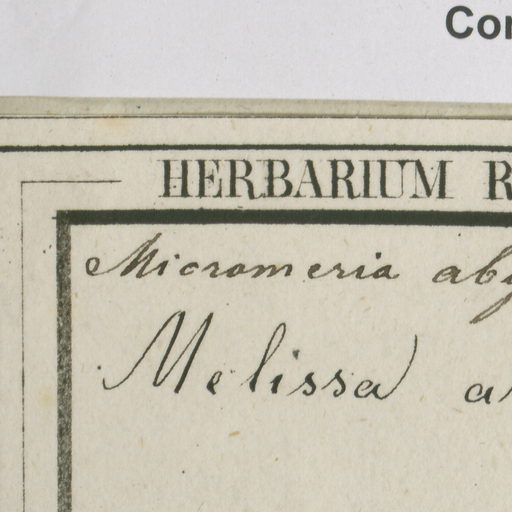 Con
HERBARIUM R
Micromeria aby
Melissa a